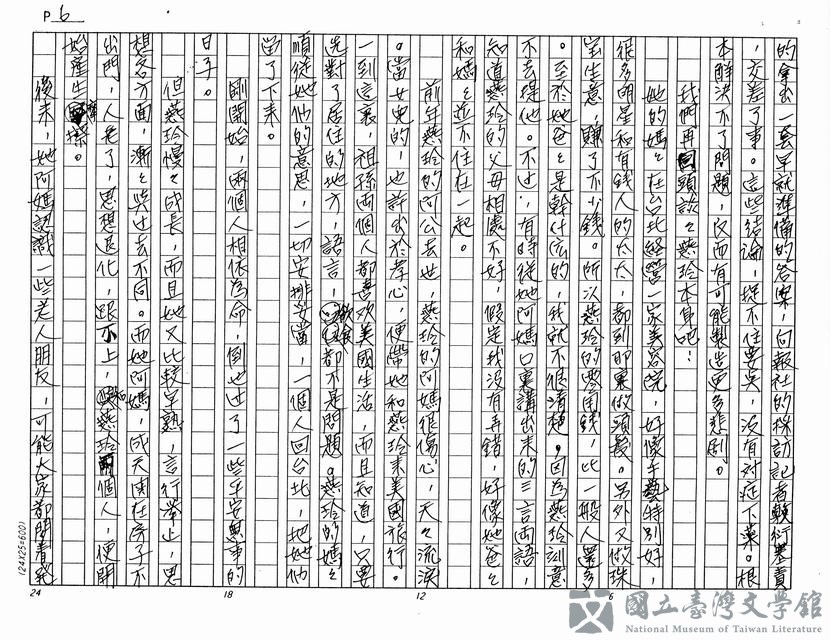 P 6
的拿出一套早就準備的答案，向報社的採訪記者敷衍塞責
，交差了事。這些結論，捉不住要點，沒有對症下藥。根
本解決不了問題，反而有可能製造更多悲劇。
我們再回頭談々燕玲本身吧！
她的媽々在台北經營一家美容院，好像手藝特別好，
很多明星和有錢人的太太，都到那裏做頭髮。另外又做珠
宝生意，賺了不少錢。所以燕玲的零用錢，比一般人還多
。至於她爸々是幹什么的，我就不很清楚。因為燕玲刻意
不去提他。不过，有時從她阿媽口裏講出來的三言两語，
知道燕玲的父母相處不好，假定我沒有弄錯，好像她爸々
和媽々並不住在一起。
前年燕玲的阿公去世，燕玲的阿媽很傷心，天々流淚
。當女兒的，也許出於孝心，便帶她和燕玲來美國旅行。
一到這裏，祖孫両個人都喜欢美國生活，而且知道，只要
選對了居住的地方，語言，飲食都不是問題。燕玲的媽々
順從她們的意思，一切安排妥當，一個人回台北，把她們
留了下來。
剛開始，兩個人相依為命，倒也过了一些平安無事的
日子。
但燕玲慢々成長，而且她又比較早熟，言行舉止，思
想各方面，漸々與过去不同。而她阿媽，成天困在房子不
出門，人老了，思想退化，跟不上，和燕玲個人，便開
始產生摩擦。
後來，她阿媽認識一些老人朋友，可能大家都閒着発
24
18
12
6
(24X25=600)
國立臺灣文學館
National Museum of Taiwan Literature